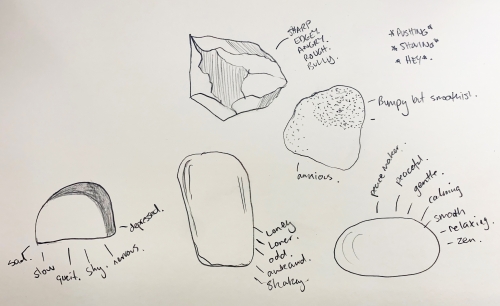 SHARP
EDGEY
ANGRY
ROUGH.
BULLY.
*PUSHING*
*SHOVING*
*HEY*
Bumpy but smoothish.
anxious.
peace maker.
peaceful.
gentle.
calming
smooth
relaxing.
zen.
lonely
loner.
odd.
awkward
shakey.
sad.
slow
queit.
shy.
nervous.
depressed.